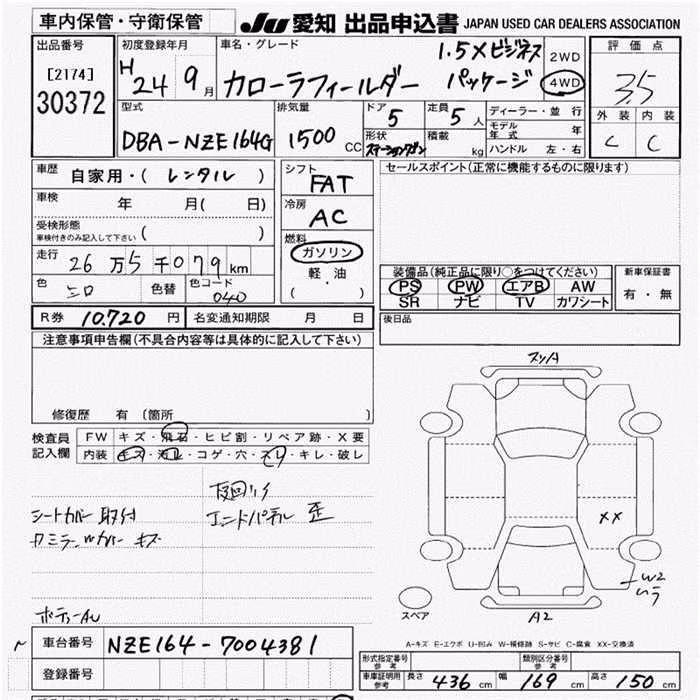 車内保管・守衛保管
JU 愛知 出品申込書 JAPAN USED CAR DEALERS ASSOCIATION
出品番号
[2174]
30372
初度登録年月
H 24 9月
車名・グレード
カローラフィールダー 1.5Xビジネスパッケージ
2WD
4WD
評価点
3.5
外装 内装
C C
型式
DBA-NZE164G
排気量
1500 CC
ドア 5
定員 5人
形状 ステーションワゴン
積載 kg
ディーラー・並行
モデル年式 年
ハンドル 左・右
車歴 自家用・(レンタル)
車検 年 月( 日)
受検形態
車検付きのみ記入して下さい ( )
走行 26万5千079km
色 シロ 色替 色コード 040
シフト FAT
冷房 AC
燃料
ガソリン
軽・油
( ・ )
セールスポイント(正常に機能するものに限ります)
装備品(純正品に限り○をつけてください)
PS PW エアB AW
SR ナビ TV カワシート
新車保証書
有・無
R券 10,720円 名変通知期限 月 日
後日品
注意事項申告欄(不具合内容等は具体的に記入して下さい)
修復歴 有 〔箇所 〕
検査員記入欄
FW キズ・飛石・ヒビ割・リペア跡・X要
内装 キズ・汚レ・コゲ・穴・スレ・キレ・破レ
シートカバー取付
エンドパネル 歪
ボディーAU
スリA
XX
W2
A2
スペア
A-キズ E-エクボ U-凹み W-補修跡 S-サビ C-腐食 XX-交換済
車台番号 NZE164-7004381
登録番号
形式指定番号 参考
類別区分番号 参考
車庫証明用 参考 長さ 436cm 幅 169cm 高さ 150cm